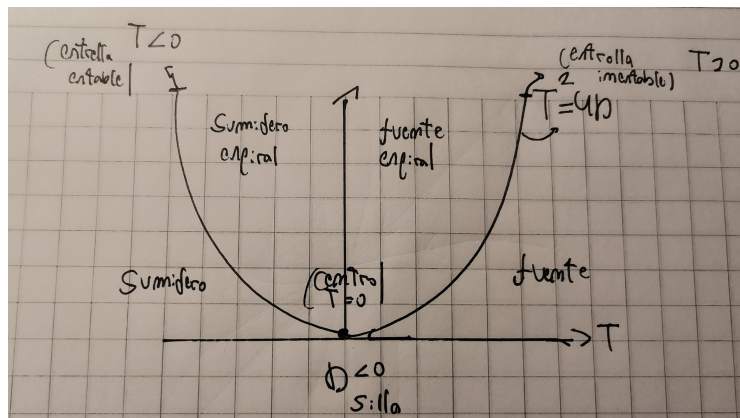 T<0
(estrella
estable)
(estrella
inestable)
T>0
T²=4D
Sumidero
espiral
fuente
espiral
Sumidero
(centro)
T=0
fuente
T
D<0
Silla